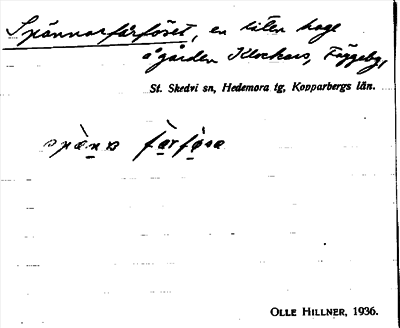 Spännarfårföset, en liten hage
å gården Klockars, Fäggeby,
St. Skedvi sn, Hedemora tg, Kopparbergs län.
OLLE HILLNER, 1936.